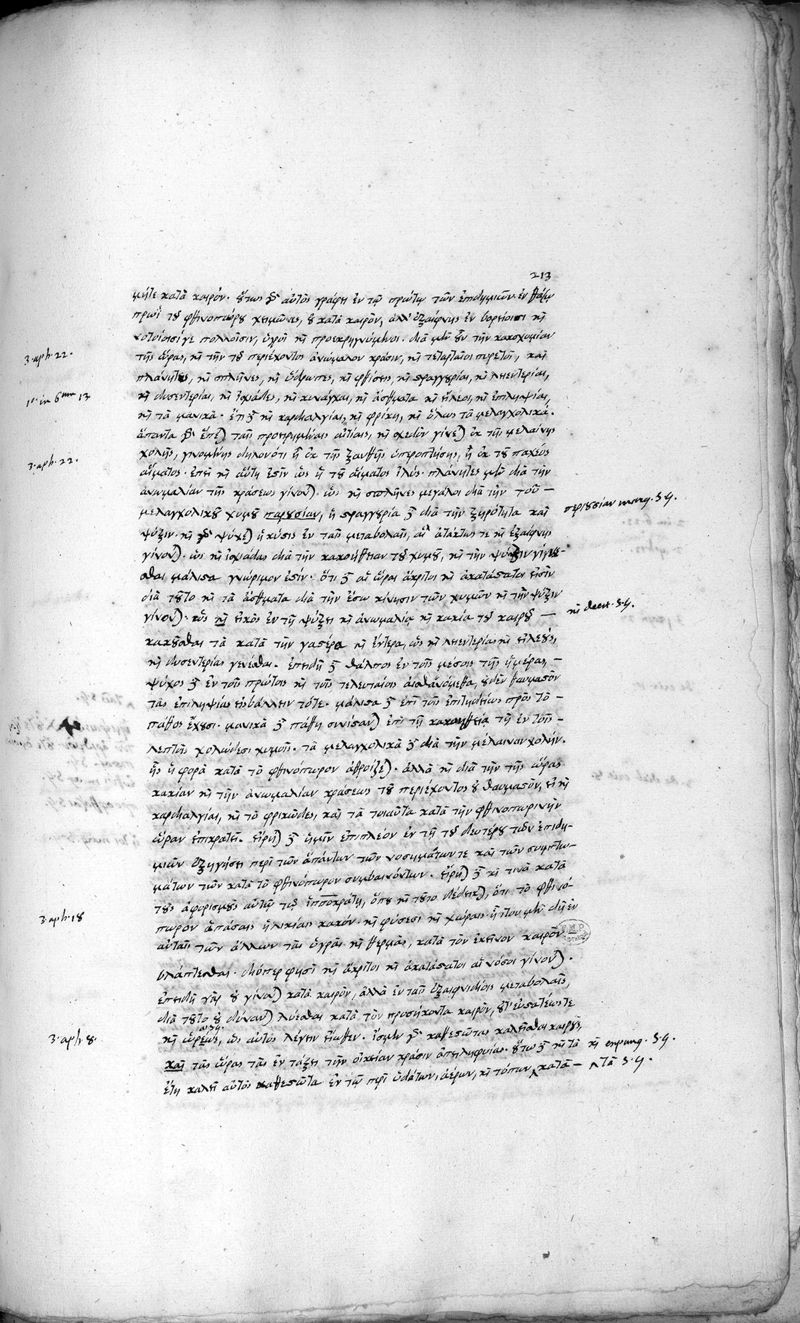 213
μήτε κατὰ καιρόν. οὕτως γὰρ αὐτὸς γράφει ἐν τῷ πρώτῳ τῶν ἐπιδημιῶν. ἐν θάσῳ
πρωῒ τοῦ φθινοπώρου χειμῶνες, οὐ κατὰ καιρὸν, ἀλλ' ἐξαίφνης ἐν βορείοισι καὶ
νοτίοισί γε πολλοῖσιν, ὑγροὶ καὶ προεκρηγνύμενοι. διὰ μὲν οὖν τὴν κακοχυμίαν
3. aph. 22.
τῆς ὥρας, καὶ τὴν τοῦ περιέχοντος ἀνώμαλον κρᾶσιν, καὶ τεταρταῖοι πυρετοὶ, καὶ
πλάνητες, καὶ σπλῆνες, καὶ ὕδρωπες, καὶ φθίσεις, καὶ στραγγουρίαι, καὶ λειεντερίαι,
1°. in 6um 13
καὶ δυσεντερίαι, καὶ ἰσχιάδες, καὶ κυνάγχαι, καὶ ἄσθματα καὶ εἰλεοὶ, καὶ ἐπιληψίαι,
καὶ τὰ μανικά. ἔτι δὲ καὶ καρδιαλγίαι, καὶ φρίκη, καὶ ὅλως τὰ μελαγχολικά.
ἅπαντα γὰρ ταῖς προειρημέναις αἰτίαις, καὶ σχεδὸν γίνεται ἐκ τῆς μελαίνης
3. aph. 22.
χολῆς, γινομένης δηλονότι ἢ ἐκ τῆς ξανθῆς ὑπεροπτήσης, ἢ ἐκ τοῦ παχέος
αἵματος. ἐπεὶ καὶ αὕτη ἐστὶν ὡς ἡ τοῦ αἵματος ἰλύς. πλάνητες μὲν διὰ τὴν
ἀνωμαλίαν τῆς κράσεως γίνονται. ὡς καὶ σπλῆνες μεγάλοι διὰ τὴν τοῦ –
μελαγχολικοῦ χυμοῦ παρουσίαν, ἡ στραγγουρία δὲ διὰ τὴν ξηρότητα καὶ
περιουσίαν marg. S. G.
ψύξιν. καὶ γὰρ ψύχεται ἡ κύστις ἐν ταῖς μεταβολαῖς, αἳ ἀτάκτως τε καὶ ἐξαίφνης
γίνονται. ὡς καὶ ἰσχιάδας διὰ τὴν κακοήθειαν τοῦ χυμοῦ, καὶ τὴν ψύξιν γίνε–
σθαι μάλιστα γνώριμον ἐστίν. ὅτι δὲ αἱ ὧραι ἄκριτοι καὶ ἀκατάστατοι εἰσὶν
διὰ τοῦτο καὶ τὰ ἄσθματα διὰ τὴν ἔσω κίνησιν τῶν χυμῶν καὶ τὴν ψύξιν
γίνονται. πῶς καὶ εἰκὸς ἐν τῇ ψύξει καὶ ἀνωμαλίᾳ καὶ κακίᾳ τοῦ καιροῦ –
καὶ deest. S. G.
κακοῦσθαι τὰ κατὰ τὴν γαστέρα καὶ ἔντερα, ὡς καὶ λειεντερίας καὶ εἰλεοὺς,
καὶ δυσεντερίας γενέσθαι. ἐπειδὴ δὲ θάλπος ἐν τοῖς μέσοις τῆς ἡμέρας, –
ψύχος δὲ ἐν τοῖς πρώτοις καὶ τοῖς τελευταίοις αἰσθανόμεθα, οὐδὲν θαυμαστὸν
τὰς ἐπιληψίας εἰσβάλλειν τότε. μάλιστα δὲ ἐπὶ τοῖς ἐπιτηδείως πρὸς τὸ –
πάθος ἔχουσι. μανικὰ δὲ πάθη συνίσταται ἐπὶ τῇ κακοηθείᾳ τῇ ἐν τοῖς –
λεπτοῖς χολώδεσι χυμοῖς. τὰ μελαγχολικὰ δὲ διὰ τὴν μέλαιναν χολὴν.
ἧς ἡ φορὰ κατὰ τὸ φθινόπωρον ἀθροίζεται. ἀλλὰ καὶ διὰ τὴν τῆς ὥρας
κακίαν καὶ τὴν ἀνωμαλίαν κράσεως τοῦ περιέχοντος οὐ θαυμαστὸν, εἰ καὶ
καρδιαλγίαι, καὶ τὸ φρικῶδες, καὶ τὰ τοιαῦτα κατὰ τὴν φθινοπωρινὴν
ὥραν ἐπικρατεῖ. εἴρηται δὲ ἡμῖν ἐπιπλέον ἐν τῇ τοῦ δευτέρου τῶν ἐπιδη–
μιῶν ἐξηγήσει περὶ τῶν ἁπάντων τῶν νοσημάτων τε καὶ τῶν συμπτω–
μάτων τῶν κατὰ τὸ φθινόπωρον συμβαινόντων. εἴρηται δὲ καί τινα κατὰ
τοὺς ἀφορισμοὺς αὐτῷ τῷ ἱπποκράτει, ὅπου καὶ τοῦτο δέδεικται, ὅτι τὸ φθινό–
3. aph. 18
πωρον ἁπάσαις ἡλικίαις κακόν. καὶ φύσεσι καὶ χώραις. ἧττον μὲν διῇ ἐν
αὐταῖς τῶν ἄλλων τὰς ὑγρὰς καὶ θερμὰς, κατὰ τὸν ἐκεῖνον καιρὸν
βλάπτεσθαι. διόπερ φησὶ καὶ ἄκριτοι καὶ ἀκατάστατοι αἱ νόσοι γίνονται.
ἐπειδὴ γὰρ οὐ γίνονται κατὰ καιρὸν, ἀλλὰ ἐν ταῖς ἐξαιφνιδίοις μεταβολαῖς,
διὰ τοῦτο οὐ δύνανται λύεσθαι κατὰ τὸν προσήκοντα καιρὸν, οὐδ' εὐσταθέως τε
3. aph. 8.
καὶ ὡρέως, ὡς αὐτὸς λέγειν εἴωθεν. ἴσμεν γὰρ καθεστῶτας καλεῖσθαι καιροὺς,
καὶ τὰς ὥρας τὰς ἐν τάξει τὴν οἰκείαν κρᾶσιν ἀπειληφυίας. οὕτω δὲ καὶ τὰ
καὶ expung. S. G.
ἔτη καλεῖ αὐτὸς καθεστῶτα ἐν τῷ περὶ ὑδάτων, ἀέρων, καὶ τόπων, κατὰ –
τὰ S. G.